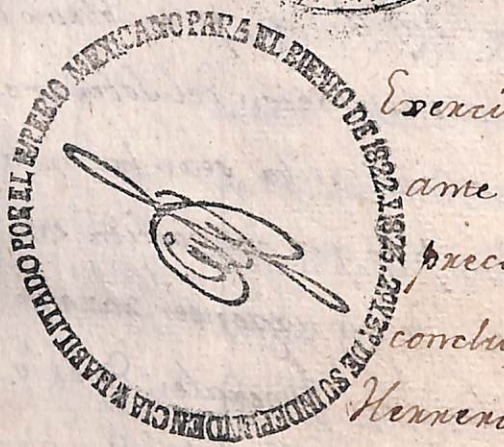 HABILITADO POR EL IMPERIO MEXICANO PARA EL BIENIO DE 1822. Y 1823. 2º Y 3º DE SU INDEPENDENCIA
Exerci
ante
prec
conclu
Herrer